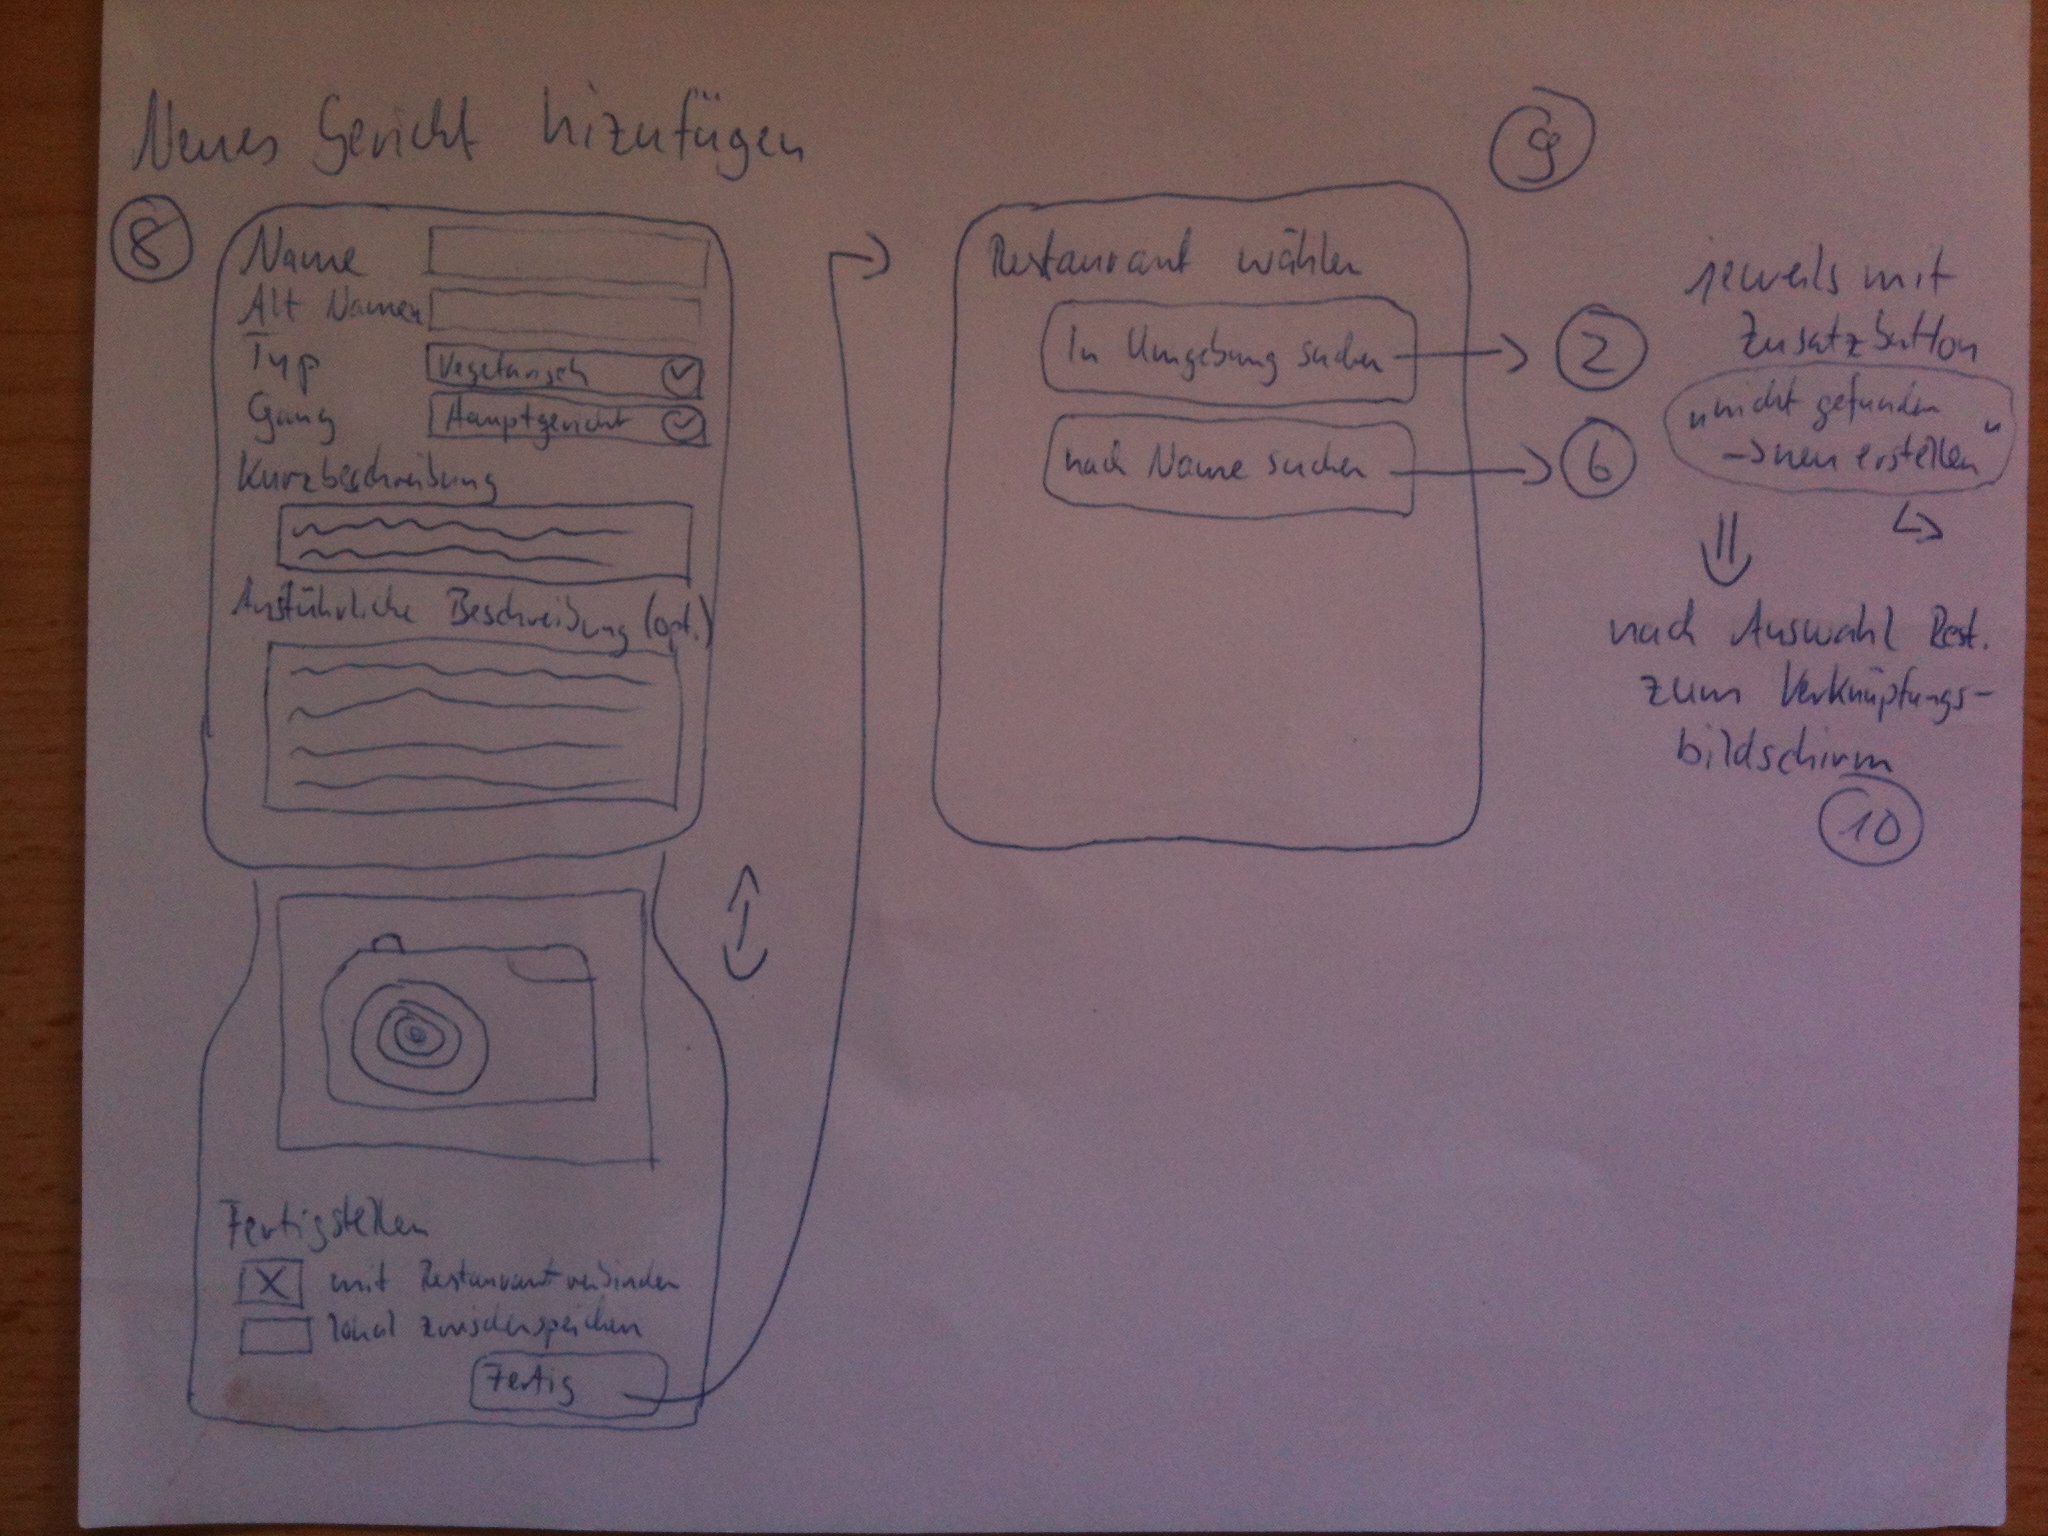 Neues Gericht hizufügen
8
Name
Alt Namen
Typ
Vegetarisch
Gang
Hauptgericht
Kurzbeschreibung
Ausführliche Beschreibung (opt.)
Fertigstellen
X mit Restaurant verbinden
lokal zwischenspeichern
Fertig
9
Restaurant wählen
In Umgebung suchen
2
nach Name suchen
6
jeweils mit
Zusatzbutton
"nicht gefunden
→ neu erstellen"
nach Auswahl Rest.
zum Verknüpfungs-
bildschirm
10